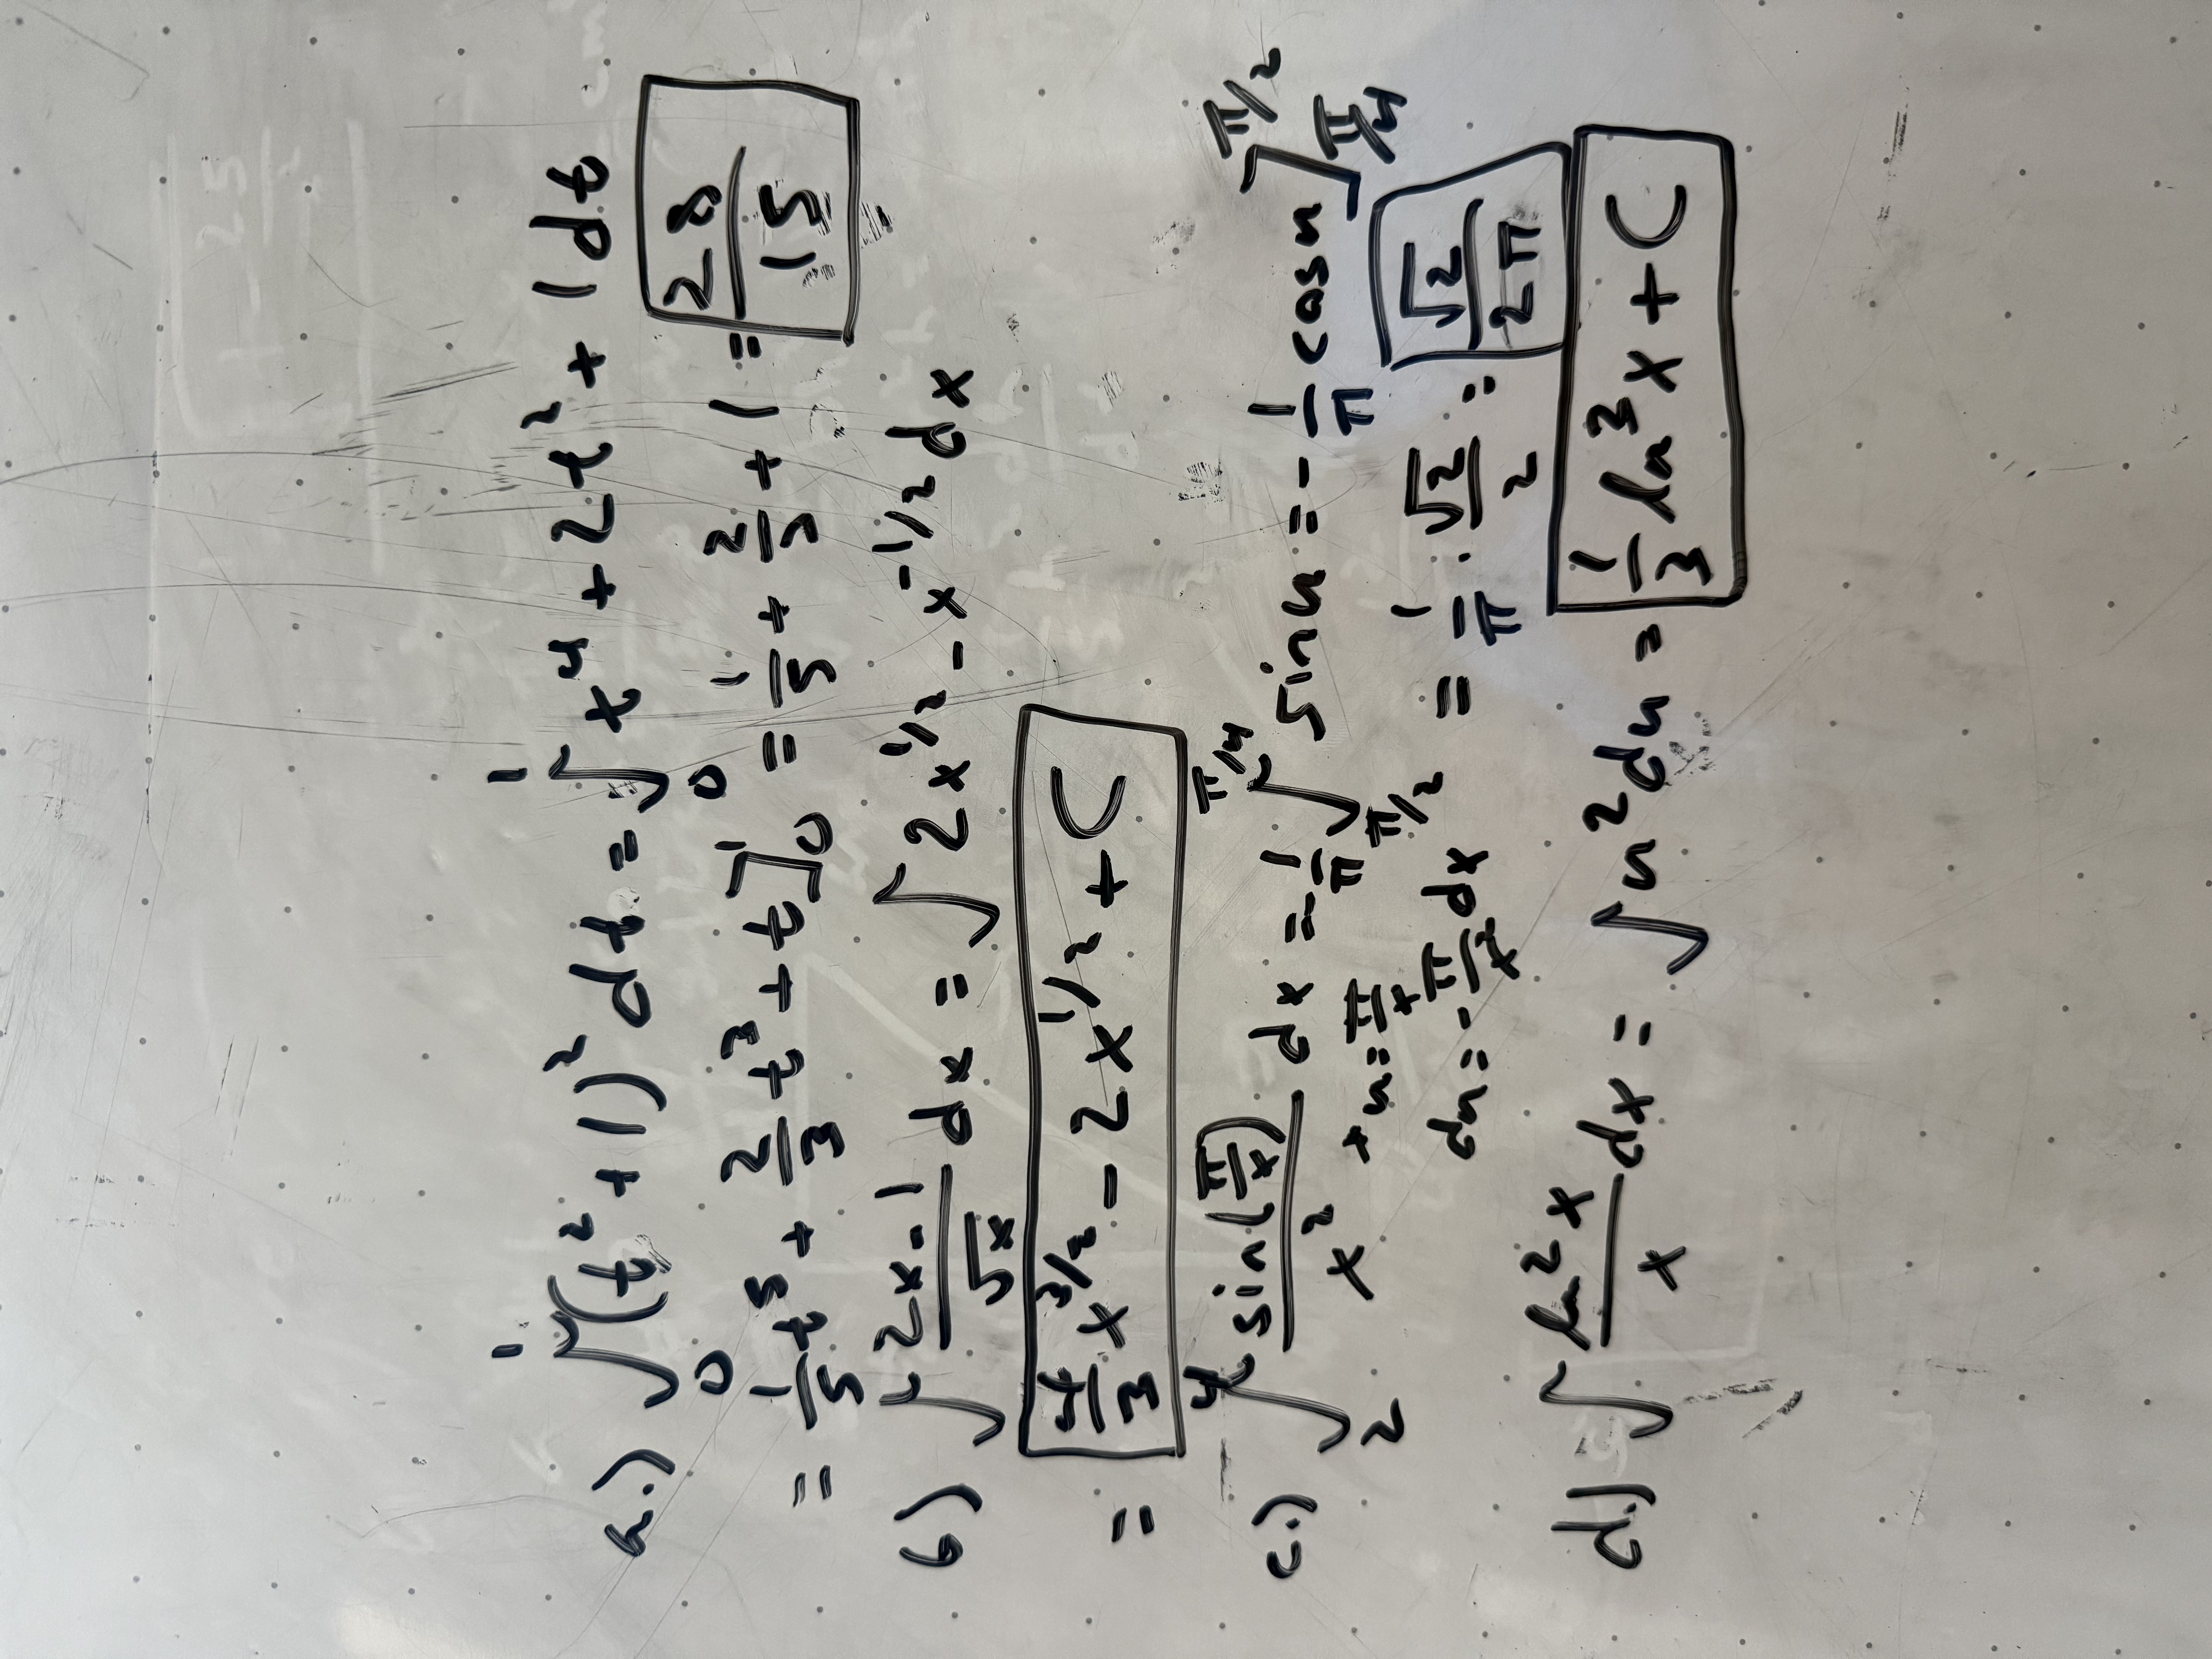 a.) ∫₀¹ (t² + 1)² dt = ∫₀¹ t⁴ + 2t² + 1 dt
= 1/5 t⁵ + 2/3 t³ + t ]₀¹ = 1/5 + 2/3 + 1 = 28/15
b) ∫ (2x - 1)/√x dx = ∫ 2x^(1/2) - x^(-1/2) dx
= 4/3 x^(3/2) - 2x^(1/2) + C
c.) ∫₂⁴ sin(π/x)/x² dx = -1/π ∫_(π/2)^(π/4) sin u = -1/π cos u ]_(π/4)^(π/2)
* u = π/x
du = -π/x² dx
= 1/π · √2/2 = √2/(2π)
d.) ∫ ln²x/x dx = ∫ u² du = 1/3 ln³x + C